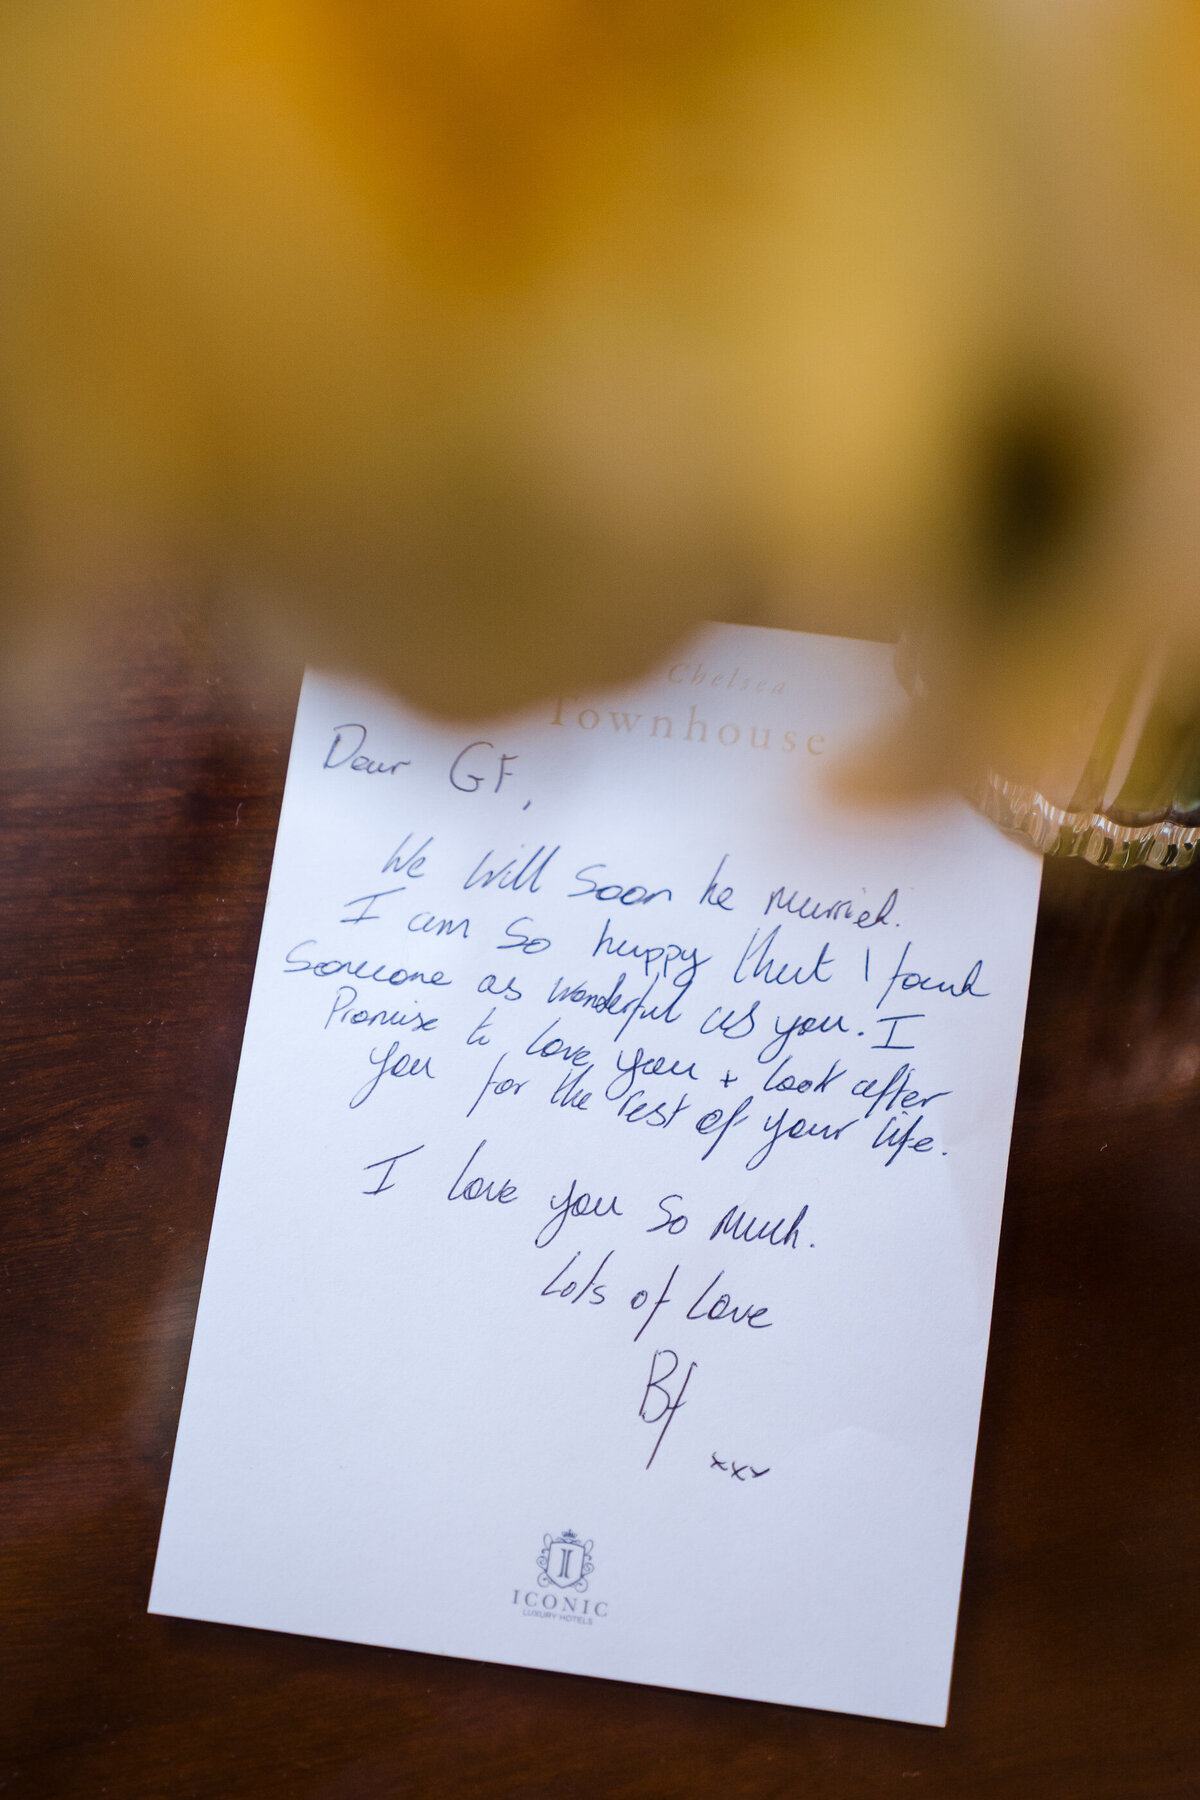 Chelsea
Townhouse
Dear GF,
We will soon be married.
I am so happy that I found
someone as wonderful as you. I
Promise to love you + look after
you for the rest of your life.
I love you so much.
Lots of Love
Bf
xxx
I
ICONIC
LUXURY HOTELS